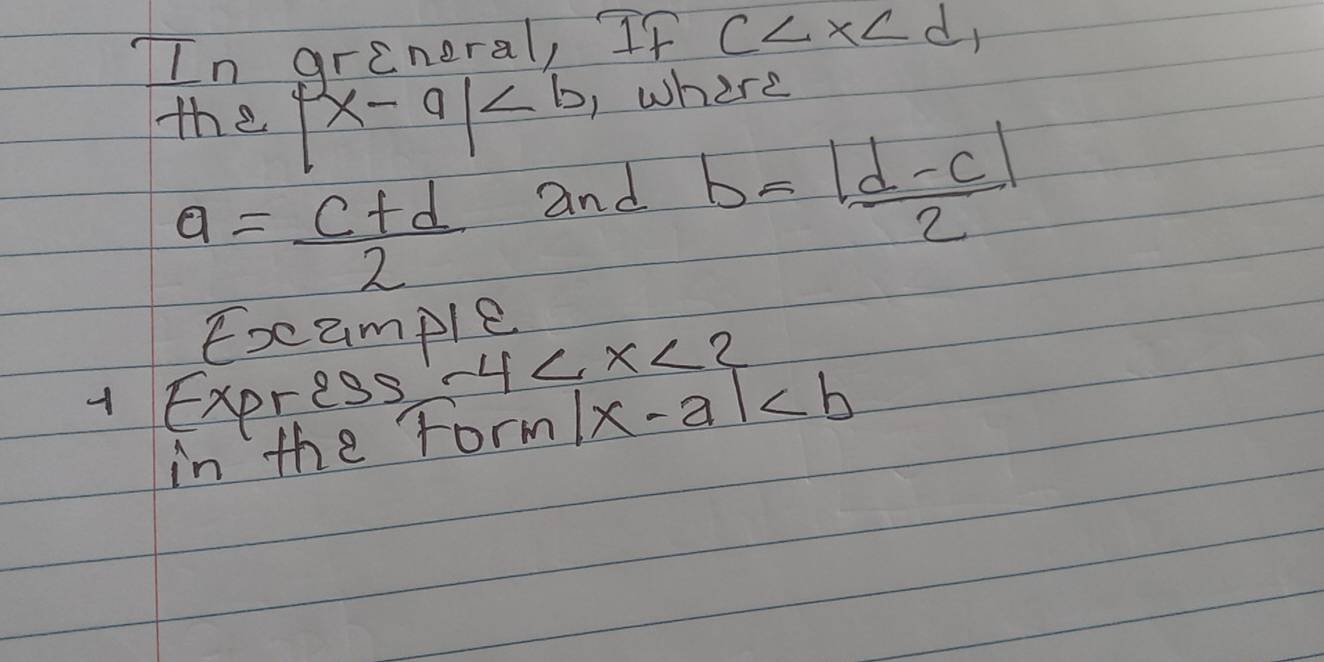 In grEneral, If c<x<d,
the |x-a|<b, where
a = c+d/2 and b = |d-c|/2
Example
1 Express -4<x<2
in the Form |x-a|<b